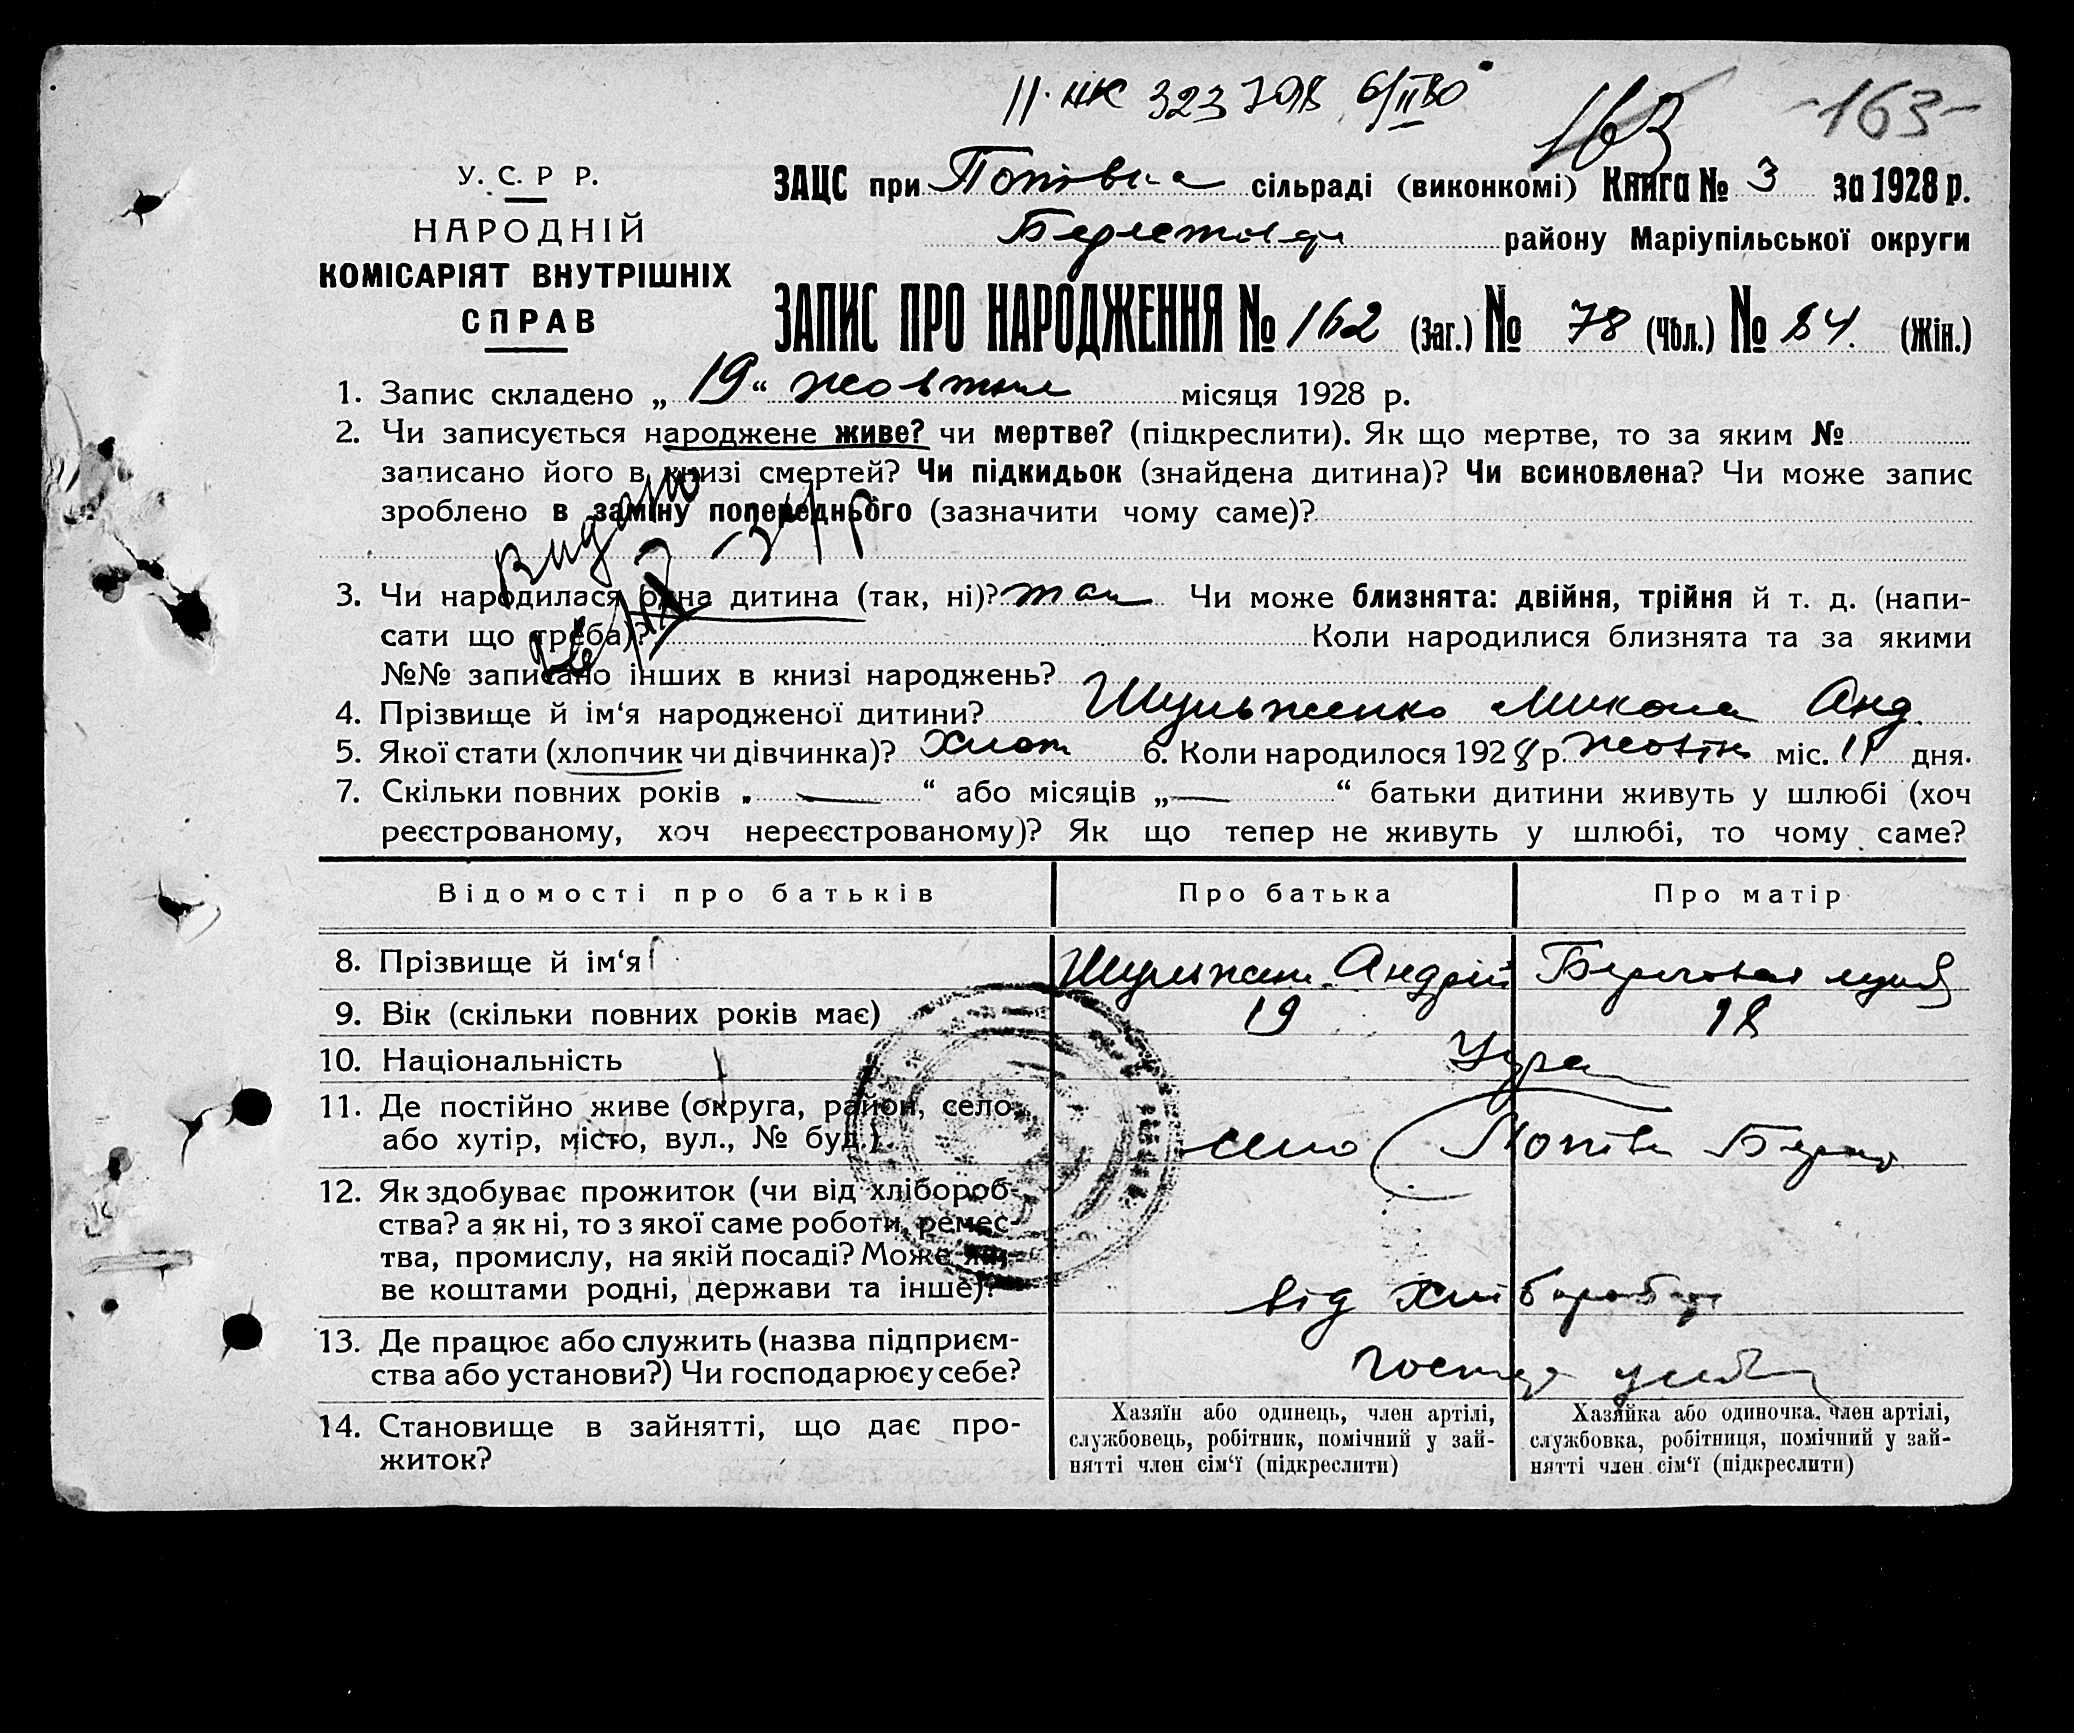 163
-163-
У. С. Р Р.
НАРОДНІЙ
КОМІСАРІЯТ ВНУТРІШНІХ
СПРАВ
ЗАЦС при Попівка сільраді (виконкомі) Книга № 3 за 1928 р.
району Маріупільської округи
ЗАПИС ПРО НАРОДЖЕННЯ № 162 (Заг.) № 78 (Чол.) № 84. (Жін.)
1. Запис складено „ 19 “ жовтня місяця 1928 р.
2. Чи записується народжене живе? чи мертве? (підкреслити). Як що мертве, то за яким №
записано його в книзі смертей? Чи підкидьок (знайдена дитина)? Чи всиновлена? Чи може запис
зроблено в заміну попереднього (зазначити чому саме)?
видано
3. Чи народилася одна дитина (так, ні)? так Чи може близнята: двійня, трійня й т. д. (напи-
сати що треба)? Коли народилися близнята та за якими
№№ записано інших в книзі народжень?
4. Прізвище й ім‘я народженої дитини? Шульженко Микола Анд.
5. Якої стати (хлопчик чи дівчинка)? Хлоп 6. Коли народилося 1928 р. міс. дня.
7. Скільки повних років „ — “ або місяців „ — “ батьки дитини живуть у шлюбі (хоч
реєстрованому, хоч нереєстрованому)? Як що тепер не живуть у шлюбі, то чому саме?
Відомості про батьків Про батька Про матір
8. Прізвище й ім‘я Андрій
9. Вік (скільки повних років має) 19 18
10. Національність
11. Де постійно живе (округа, район, село,
або хутір, місто, вул., № буд.) село
12. Як здобуває прожиток (чи від хлібороб-
ства? а як ні, то з якої саме роботи, ремес-
тва, промислу, на якій посаді? Може жи-
ве коштами родні, держави та інше)? від
13. Де працює або служить (назва підприєм-
ства або установи?) Чи господарює у себе?
14. Становище в зайнятті, що дає про-
житок?
Хазяїн або одинець, член артілі,
службовець, робітник, помічний у зай-
нятті член сім‘ї (підкреслити)
Хазяйка або одиночка, член артілі,
службовка, робітниця, помічний у зай-
нятті член сім‘ї (підкреслити)